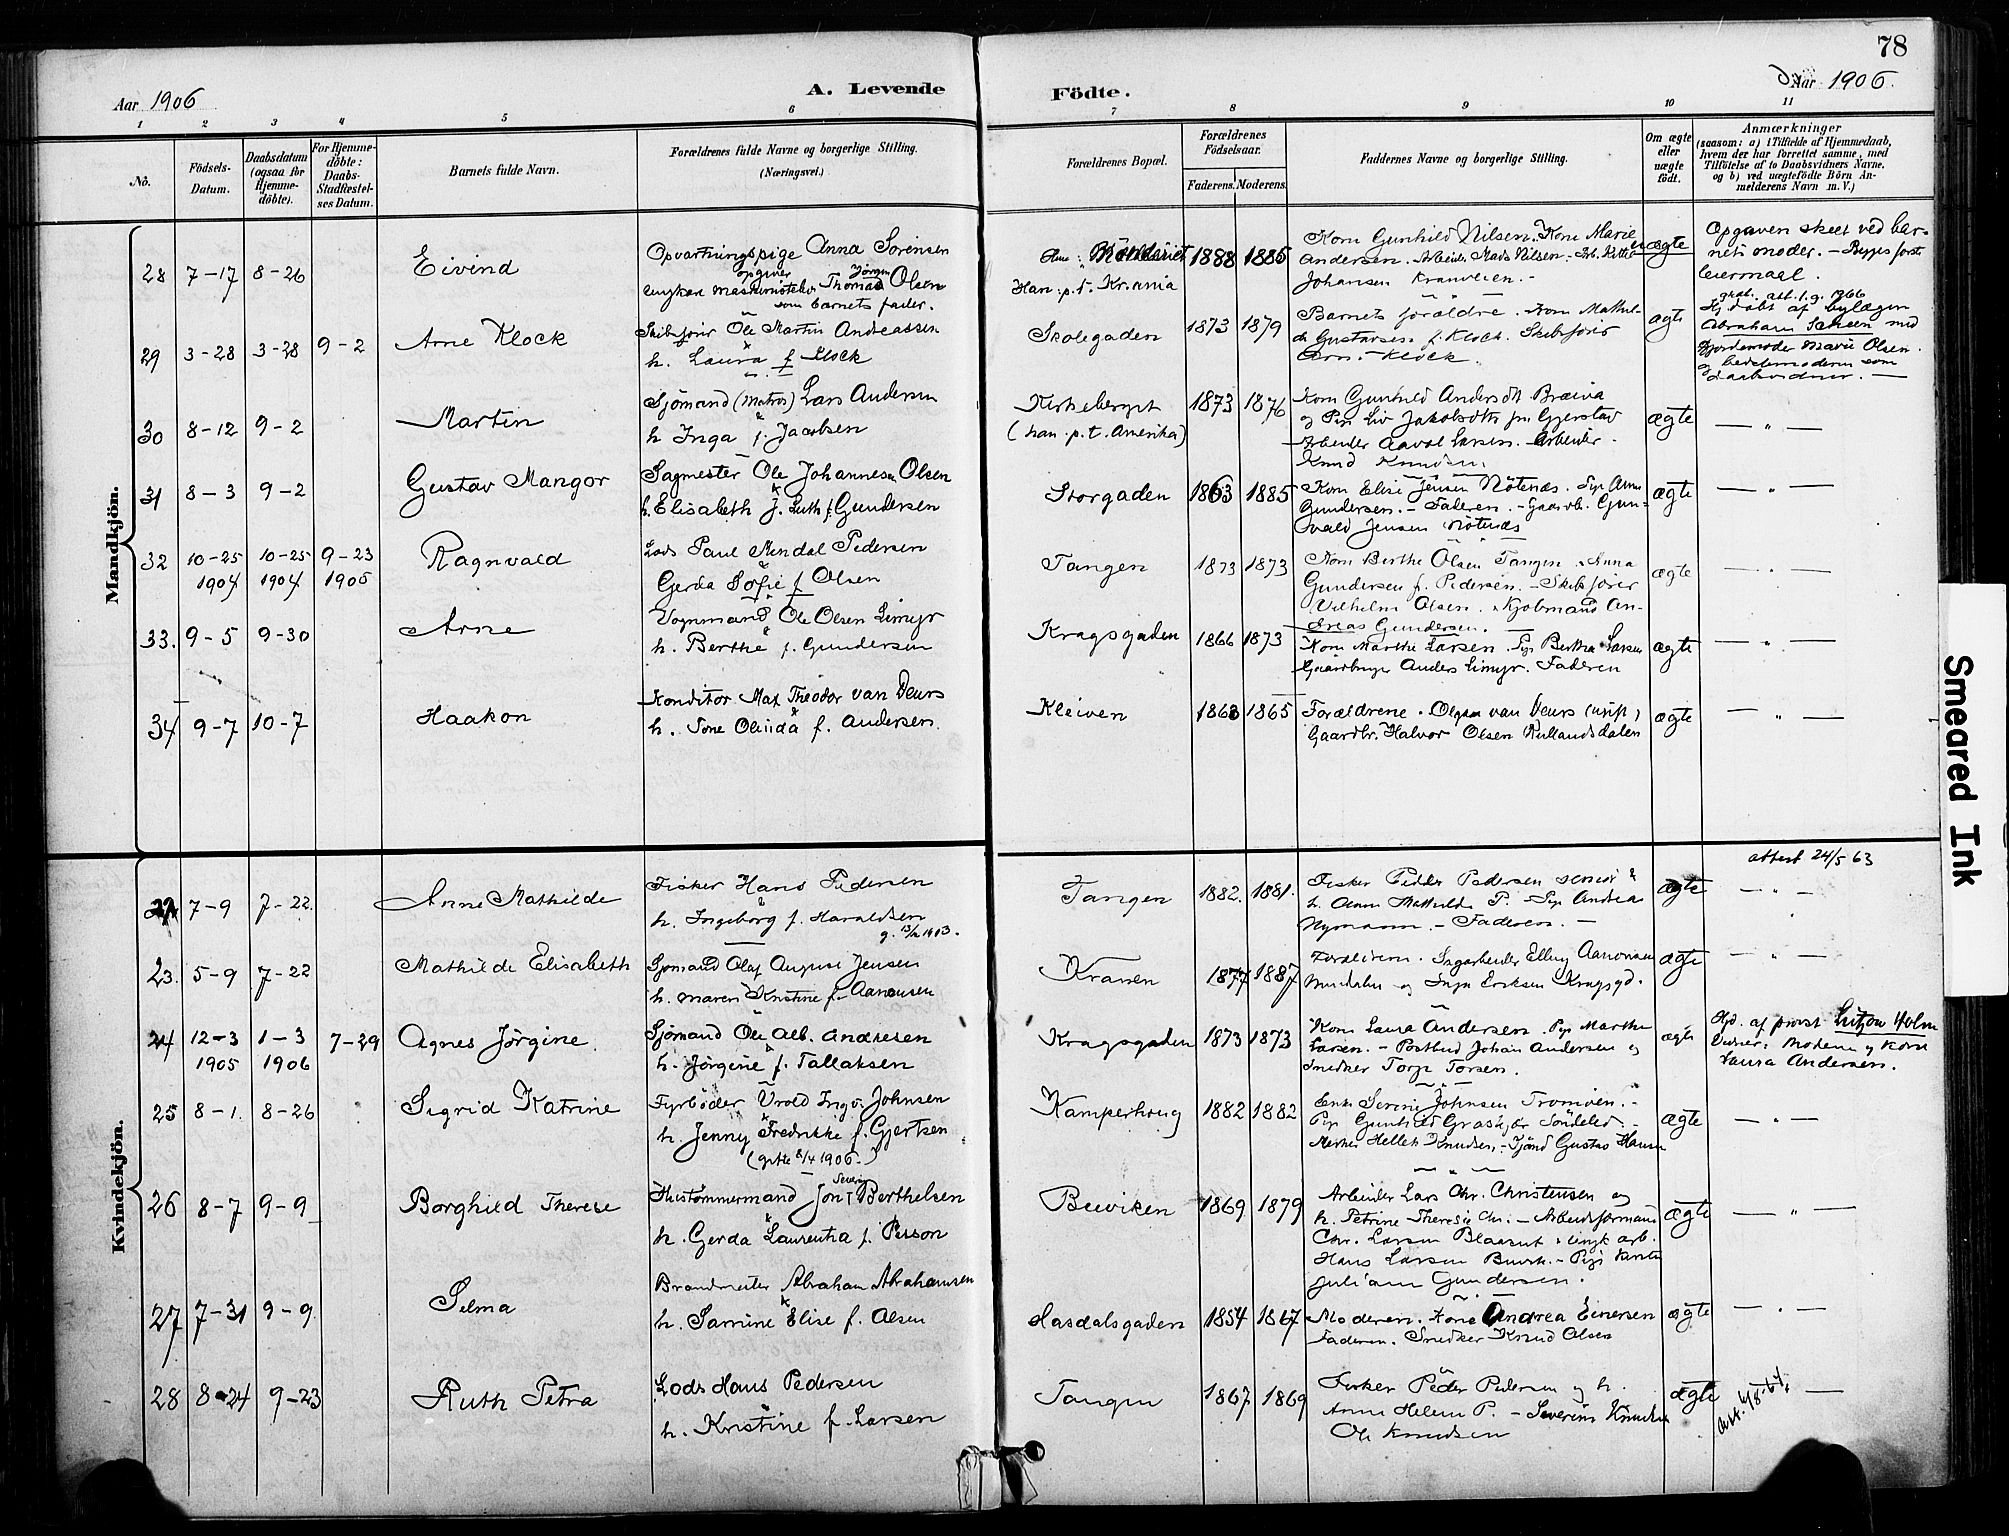 78
Aar 1906
A. Levende
Födte.
Aar 1906.
1 2 3 4 5 6 7 8 9 10 11
No.
Födsels-Datum.
Daabsdatum (ogsaa for Hjemme-döbte).
For Hjemme-döbte: Daabs-Stadfæstel-ses Datum.
Barnets fulde Navn.
Forældrenes fulde Navne og borgerlige Stilling.
(Næringsvei.)
Forældrenes Bopæl.
Forældrenes Födselsaar.
Faderens. Moderens.
Faddernes Navne og borgerlige Stilling.
Om ægte eller uægte födt.
Anmærkninger
(saasom: a) i Tilfælde af Hjemmedaab,
hvem der har forrettet samme, med
Tilföielse af to Daabsvidners Navne,
og b) ved uægtefödte Börn An-
melderens Navn m. V.)
Mandkjön.
28 7-17 8-26 Eivind
Opvartningspige Anna Sörensen
opgiver Jörgen
ungkar maskinist Thomas Olsen
som barnets fader.
Han: p.t. Kr.ania
1888 1885
Kone Gunhild Nilsen. Kone Marie
Andersen. Arbeider Mads Nilsen.
Johansen Kranveien.
uægte
Opgaven skeet ved bar-
nets moder. - Begges förste
leiermaal.
29 3-28 3-28 9-2 Arne Klock
Skibsförer Ole Martin Andreassen
h. Laura f. Klock
Skolegaden 1873 1879
Barnets forældre. Kone Mathil-
de Gustavsen f. Klock. Skibsförer
Klock.
ægte
att. 1.9.1966
Hj.döbt af bylægen
Abraham med
Jordemoder Marie Olsen
og bedstemoderen som
daabsvidner.
30 8-12 9-2 Martin
Sjömand (Matros) Lars Andersen
h. Inga f. Jacobsen
Kirkeberget
(han p.t. Amerika)
1873 1876
Kone Gunhild Andersdtr. Bræiva
og Pige Liv Jakobsdtr. fra Gjerstad
Arbeider Larsen. Arbeider
Knud Knudsen
ægte — " —
31 8-3 9-2 Gustav Mangor
Sagmester Ole Johannesen Olsen
h. Elisabeth J. Ruth f. Gundersen
Storgaden 1863 1885
Kone Elise Jensen Nötenæs. Pige Anna
Gundersen. - Faderen. - Gaardbr. Gun-
vald Jensen Nötenæs
ægte — " —
32 10-25 1904 10-25 1904 9-23 1905 Ragnvald
Lods Paul Mindal Pedersen
Gerda Sofie f. Olsen
Tangen 1873 1873
Kone Berthe Olsen Tangen. Anna
Gundersen f. Pedersen. - Skibsförer
Vilhelm Olsen. Kjöbmand An-
dreas Gundersen.
ægte — " —
33. 9-5 9-30 Arne
Vognmand Ole Olsen Limyr
h. Berthe f. Gundersen
Kragsgaden 1866 1873
Kone Marthe Larsen. Pige Bertha Larsen
Gaardbruger Anders Limyr. Faderen
ægte — " —
34 9-7 10-7 Haakon
Konditor Max Theodor van Deurs
h. Tone Olinda f. Andersen.
Kleiven 1863 1865
Forældrene. Olga van Deurs (ugift)
Gaardbr. Halvor Olsen
ægte — " —
Kvindekjön.
attest 24/5 63
22 7-9 7-22. Anne Mathilde
Fisker Hans Pedersen
h. Ingeborg f. Haraldsen
Tangen 1882. 1881.
Fisker Peder Pedersen senior &
h. Anne Mathilde P. Pige Andrea
Nymann. - Faderen. -
ægte — " —
23. 5-9 7-22 Mathilde Elisabeth
Sjömand Olaf August Jensen
h. Maren Kristine f. Aanonsen
Kranen 1877 1887
Forældrene. Sagarbeider Elling Aanonsen
og Inga Eriksen Kragsgd.
ægte — " —
24 12-3 1905 1-3 1906 7-29 Agnes Jörgine
Sjömand Ole Alb. Andresen
h. Jörgine f. Tallaksen
Kragsgaden 1873 1873
Kone Laura Andersen. Pige Marthe
Larsen. - Postbud Johan Andersen og
Snedker Torje Torsen.
ægte
Hjd. af provst Lützow Holm
Vidner: Moderen og Kone
Laura Andersen.
25 8-1. 8-26 Sigrid Katrine
Fyrböder Vrold Ingv. Johnsen
h. Jenny Fredrikke f. Gjertsen
(gifte 8/4 1906.)
Kamperhoug 1882 1882
Enke Serine Johnsen Tromöen.
Pige Gunhild Söndeled.
Mærker Hellek Knudsen. - Sjömd Gustav Hansen
ægte — " —
26 8-7 9-9 Borghild Therese
Severin
Hustömmermand Jon Berthelsen
h. Gerda Laurentia f. Person
Buviken 1869 1879
Arbeider Lars Chr. Christensen og
h. Petrine Theresie Chr. - Arbeidsformand
Chr. Larsen & ungk. arb.
Hans Larsen Buvik. - Pige
Juliane Gundersen.
ægte — " —
27 7-31 9-9. Selma
Brandmester Abraham Abrahamsen
h. Samine Elise f. Olsen
Hasdalsgaden 1854 1867
Moderen. Kone Andrea Einersen
Faderen. Snedker Knud Olsen
ægte — " —
28 8-24 9-23 Ruth Petra
Lods Hans Pedersen
h. Kristine f. Larsen
Tangen 1867 1869
Fisker Peder Pedersen og h.
Anne Helene P. - Severine Knudsen
Ole Knudsen
ægte
Smeared Ink